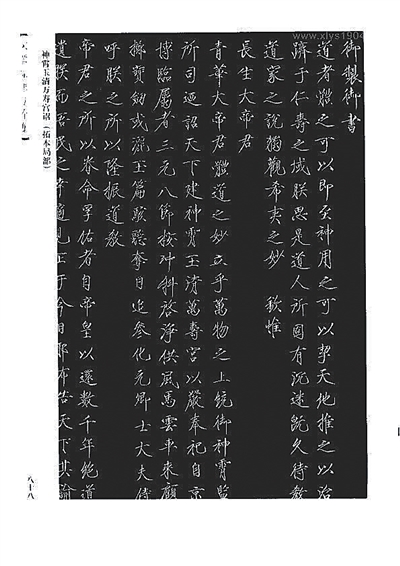 www.xlys1904
御製御書
道者體之可以即至神用之可以挈天地推之以治
躋于仁壽之域朕思是道人所固有沉迷既久待教
道家之說獨觀希夷之妙　欽惟
長生大帝君
青華大帝君體道之妙立乎萬物之上統御神霄監
所司迺詔天下建神霄玉清萬壽宮以嚴奉祀自京
博臨屬者三元八節按沖科啓淨供風馬雲車來顧
擲寶劍或洒玉篇駭聽奪目追參化元卿士大夫侍
呼朕之所以隆振道教
帝君之所以眷命孚佑者自帝皇以還數千年絕道
遺朕而吾民之幸適見正于今日耶布告天下其諭
神霄玉清万寿宫诏（拓本局部）
八十八